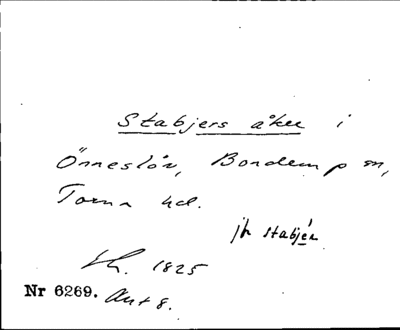 Stabjers åker i
Önneslöv, Bonderup sn,
Torna hd.
jfr stabjér
Lh. 1825
Nr 6269. Akt 8.